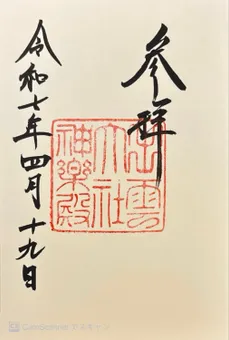 参拝
出雲
大社
神楽殿
令和七年四月十九日
CamScanner でスキャン